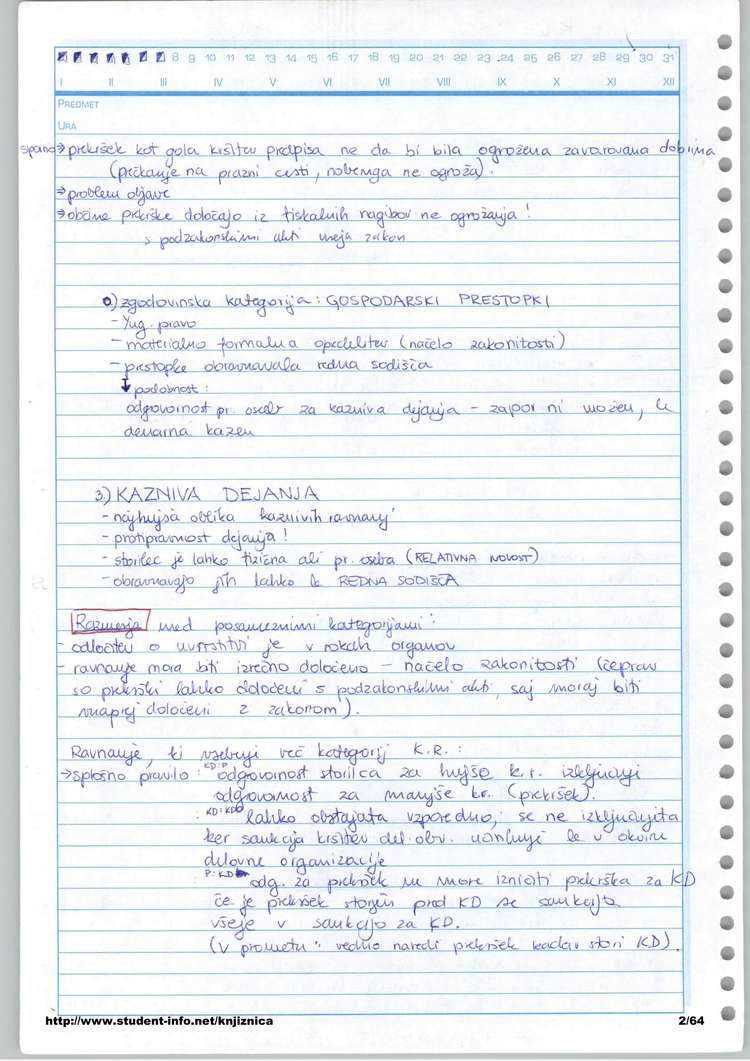 8 9 10 11 12 13 14 15 16 17 18 19 20 21 22 23 24 25 26 27 28 29 30 31
I II III IV V VI VII VIII IX X XI XII
PREDMET
URA
→ prekršek kot gola kršitev predpisa ne da bi bila ogrožena zavarovana dobrina
(prečkanje na prazni cesti, nobenga ne ogroža).
→ problem objave
→ občine prekrške določajo iz fiskalnih nagibov ne ogrožanja!
s podzakonskimi akti meja zakon
o) zgodovinska kategorija: GOSPODARSKI PRESTOPKI
- Yug. pravo
- materialno formalna opredelitev (načelo zakonitosti)
- prestopke obravnavala redna sodišča
↓ podobnost:
odgovornost pr. oseb za kazniva dejanja - zapor ni možen, le
denarna kazen
3.) KAZNIVA DEJANJA
- najhujša oblika kaznivih ravnanj
- protipravnost dejanja!
- storilec je lahko fizična ali pr. oseba (RELATIVNA NOVOST)
- obravnavajo jih lahko le REDNA SODIŠČA
Razmerja med posameznimi kategorijami:
- odločitev o uvrstitvi je v rokah organov
- ravnanje mora biti izrečno določeno - načelo zakonitosti (čeprav
so prekrški lahko določeni s podzakonskimi akti, saj moraj biti
vnaprej določeni z zakonom).
Ravnanje, ki vsebuji več kategorij K.R.:
→ splošno pravilo: KD:P odgovornost storilca za hujše k.r. izključuji
odgovornost za manjše kr. (prekršek).
KD:KD lahko obstajata vzporedno, se ne izključujita
ker sankcija kršitev del. obv. učinkuje le v okviru
delovne organizacije
P:KD odg. za prekršek ne more izničiti prekrška za KD
če je prekršek storjen pred KD se sankcija
všteje v sankcijo za KD.
(V prometu: vedno naredi prekršek kadar stori KD).
http://www.student-info.net/knjiznica 2/64